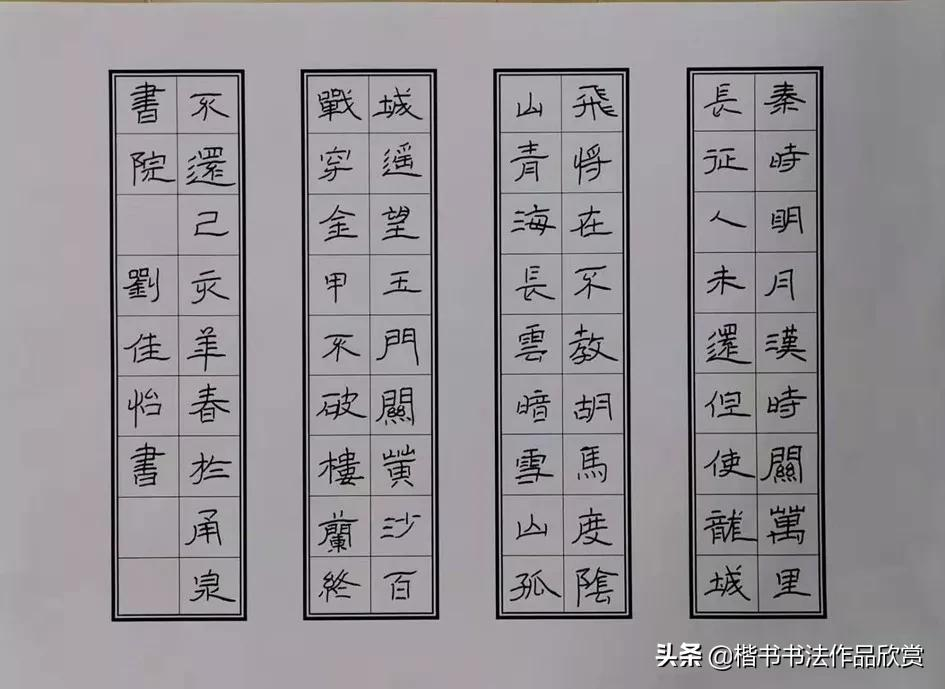 秦時明月漢時關萬里
長征人未還但使龍城
飛將在不教胡馬度陰
山青海長雲暗雪山孤
城遥望玉門關黃沙百
戰穿金甲不破樓蘭終
不還己亥羊春於甬泉
書院 劉佳怡書
头条 @楷书书法作品欣赏